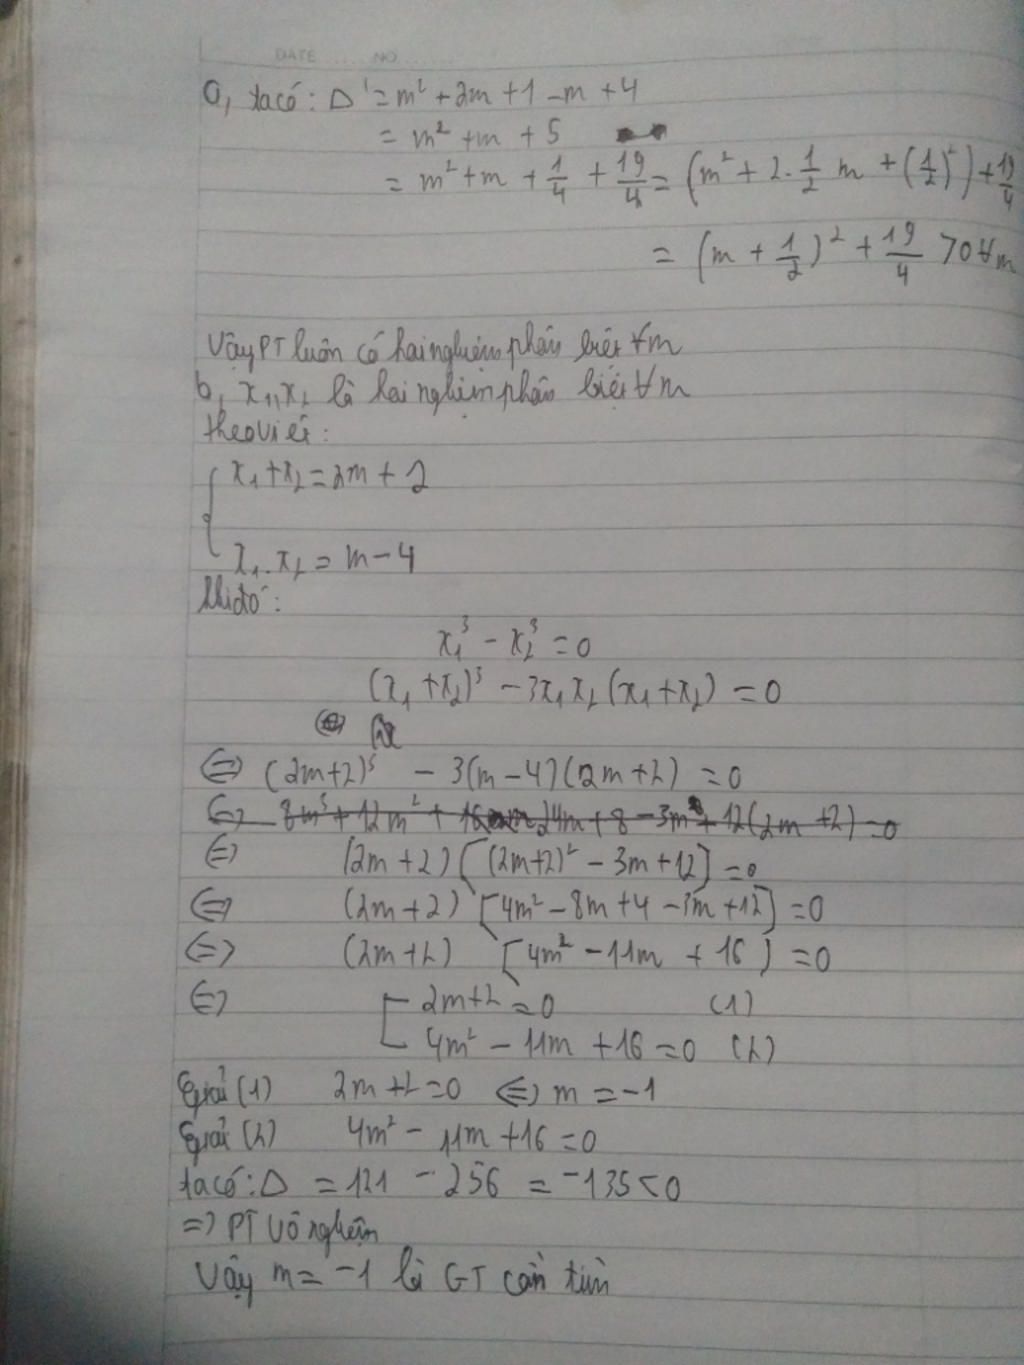 DATE ..... NO ......
a, ta có: Δ' = m² + 2m + 1 - m + 4
= m² + m + 5
= m² + m + 1/4 + 19/4 = (m² + 2. 1/2 m + (1/2)²) + 19/4
= (m + 1/2)² + 19/4 > 0 ∀m
Vậy PT luôn có hai nghiệm phân biệt ∀m
b, x₁, x₂ là hai nghiệm phân biệt ∀m
theo viét:
x₁ + x₂ = 2m + 2
x₁ . x₂ = m - 4
Khi đó:
x₁³ - x₂³ = 0
(x₁ + x₂)³ - 3x₁x₂(x₁ + x₂) = 0
⇔ (2m+2)³ - 3(m - 4)(2m + 2) = 0
⇔ (2m + 2) [(2m+2)² - 3m + 12] = 0
⇔ (2m + 2) [4m² - 8m + 4 - 3m + 12] = 0
⇔ (2m + 2) [4m² - 11m + 16] = 0
⇔ 2m + 2 = 0 (1)
4m² - 11m + 16 = 0 (2)
Giải (1) 2m + 2 = 0 ⇔ m = -1
Giải (2) 4m² - 11m + 16 = 0
ta có: Δ = 121 - 256 = -135 < 0
=> PT vô nghiệm
Vậy m = -1 là GT cần tìm